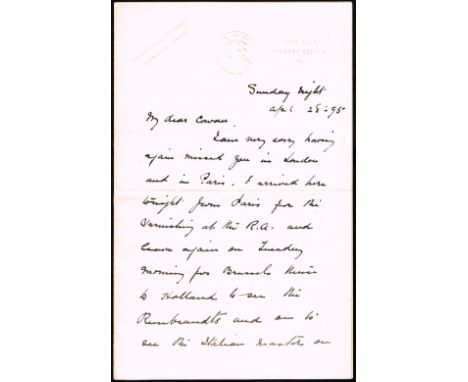 ARTS CLUB,
HANOVER SQUARE.
Sunday night
Apl 28-95
My dear Cowan
I am very sorry having
again missed you in London
and in Paris. I arrived here
tonight from Paris for the
Varnishing at the R.A. and
leave again on Tuesday
morning for Brussels thence
to Holland to see the
Rembrandts and on to
see the Italian masters on